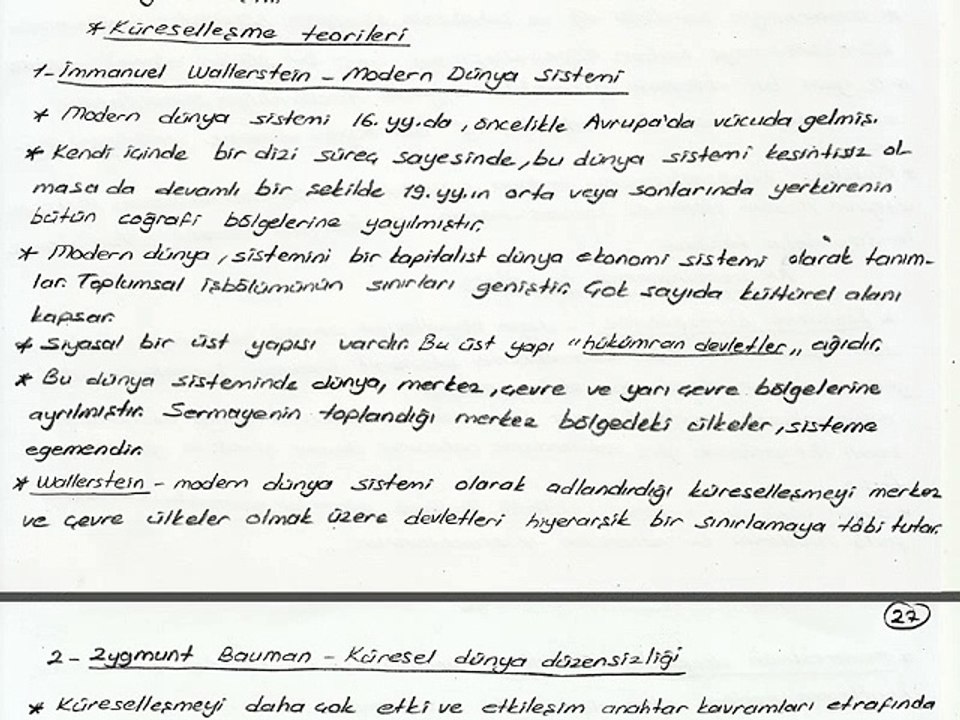 * Küreselleşme teorileri
1- İmmanuel Wallerstein - Modern Dünya Sistemi
* Modern dünya sistemi 16.yy.da, öncelikle Avrupa'da vücuda gelmiş.
* Kendi içinde bir dizi süreç sayesinde, bu dünya sistemi kesintisiz ol-
masa da devamlı bir şekilde 19.yy.ın orta veya sonlarında yerkürenin
bütün coğrafi bölgelerine yayılmıştır.
* Modern dünya, sistemini bir kapitalist dünya ekonomi sistemi olarak tanım-
lar. Toplumsal işbölümünün sınırları geniştir. Çok sayıda kültürel alanı
kapsar.
* Siyasal bir üst yapısı vardır. Bu üst yapı "hükümran devletler" ağıdır.
* Bu dünya sisteminde dünya, merkez, çevre ve yarı çevre bölgelerine
ayrılmıştır. Sermayenin toplandığı merkez bölgedeki ülkeler, sisteme
egemendir.
* Wallerstein - modern dünya sistemi olarak adlandırdığı küreselleşmeyi merkez
ve çevre ülkeler olmak üzere devletleri hiyerarşik bir sınırlamaya tâbi tutar.
27
2- Zygmunt Bauman - Küresel dünya düzensizliği
* Küreselleşmeyi daha çok etki ve etkileşim anahtar kavramları etrafında